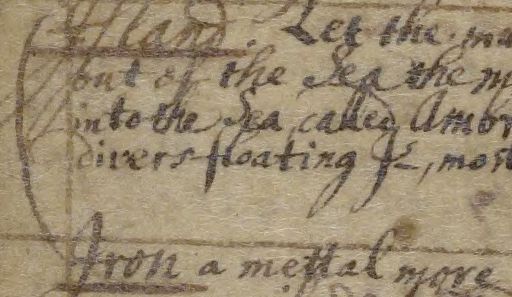 Island. Let the
out of the Sea the
into the Sea called Amor
divers floating &, most
Iron a mettal more